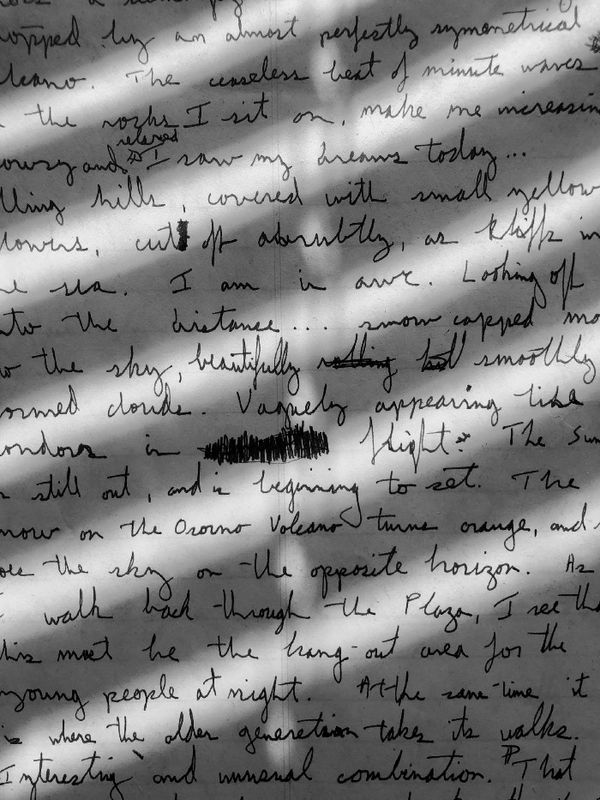 opped by an almost perfectly symmetrical
lcano. The ceaseless beat of minute waves
the rocks I sit on, make me increasin
relaxed
owsy and I saw my dreams today...
lling hills, covered with small yellow
lowers, cut off abrubtly, as kliffs in
e sea. I am in awe. Looking off
nto the distance... snow capped mo
w the sky, beautifully rolling hill smoothly
ormed clouds. Vaguely appearing like
ondors in flight. The Sun
s still out, and is beginning to set. The
now on the Osorno Volcano turns orange, and s
oes the sky on the opposite horizon. As
I walk back through the Plaza, I see tha
his must be the hang-out area for the
young people at night. At the same time it
is where the older generation takes its walks.
Interesting and unusual combination. That